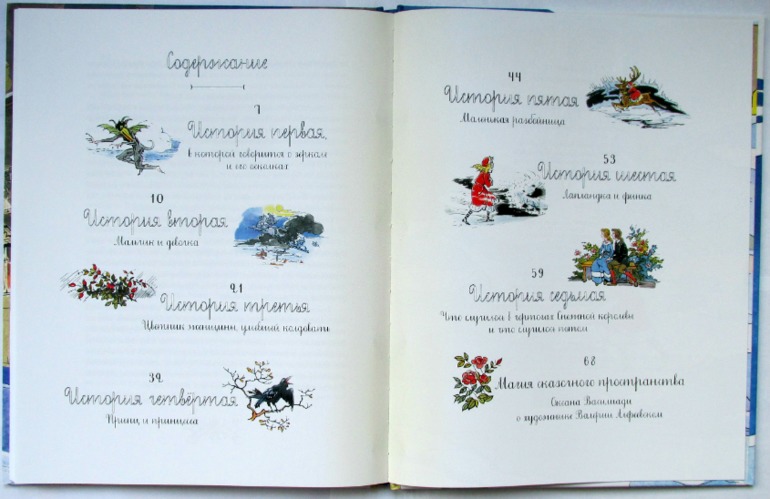 Содержание
7
История первая,
в которой говорится о зеркале
и его осколках
10
История вторая
Мальчик и девочка
21
История третья
Цветник женщины, умевшей колдовать
32
История четвёртая
Принц и принцесса
44
История пятая
Маленькая разбойница
53
История шестая
Лапландка и финка
59
История седьмая
Что случилось в чертогах Снежной королевы
и что случилось потом
68
Магия сказочного пространства
Оксана Василиади
о художнике Валерии Алфеевском